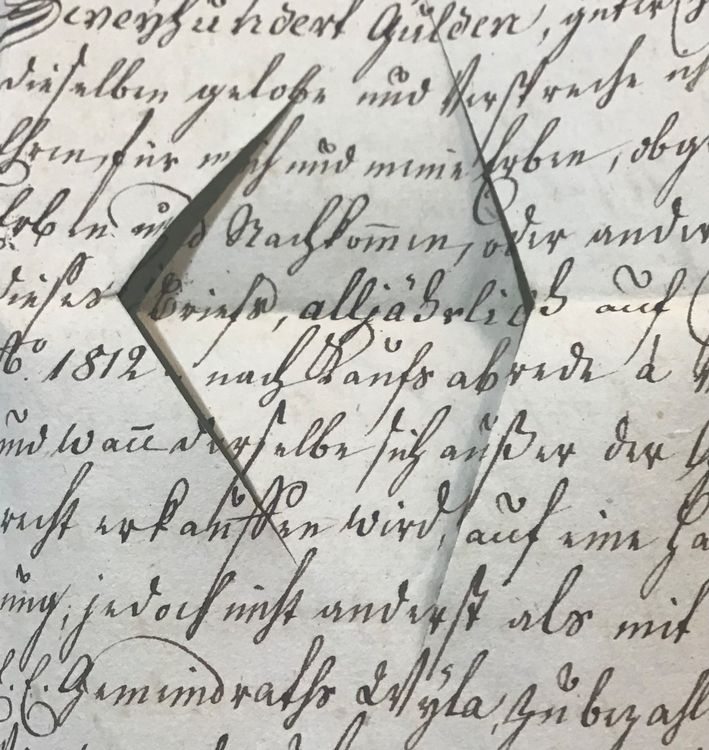 Zweyhundert Gulden,
dieselben gelobe und Verspreche ich
Ihme, für mich und meine Erben,
Erben und Nachkom̄en, oder ander
dieses Briefs, alljährlich auf
A.º 1812. nach Kaufs abrede à
und wan̄ derselbe sich außer der
recht erkauffen wird, auf eine
ung, jedoch nicht anderst als mit
E. E. Gemeindraths Wÿla, zu bezahl